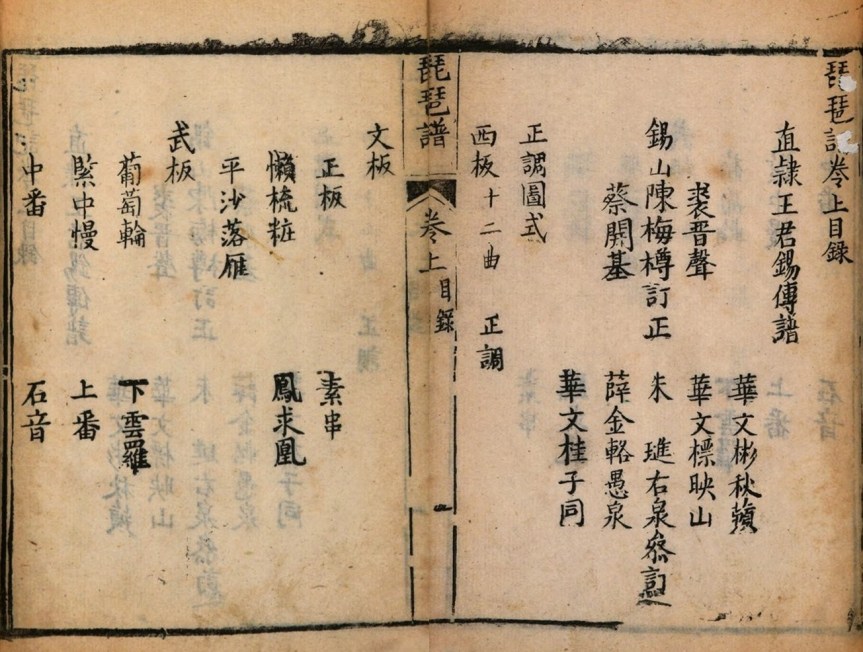 琵琶譜卷上目錄
直隸王君錫傳譜
華文彬秋蘋
裘晋聲 華文標映山
錫山陳梅樽訂正 朱 璡右泉叅訂
蔡開基 薛金輅愚泉
華文桂子同
正調圖式
西板十二曲 正調
琵琶譜 卷上目錄 一
文板
正板 素串
懶梳粧 鳳求凰
平沙落雁
武板
葡萄輪 下雲羅
緊中慢 上番
中番 石音